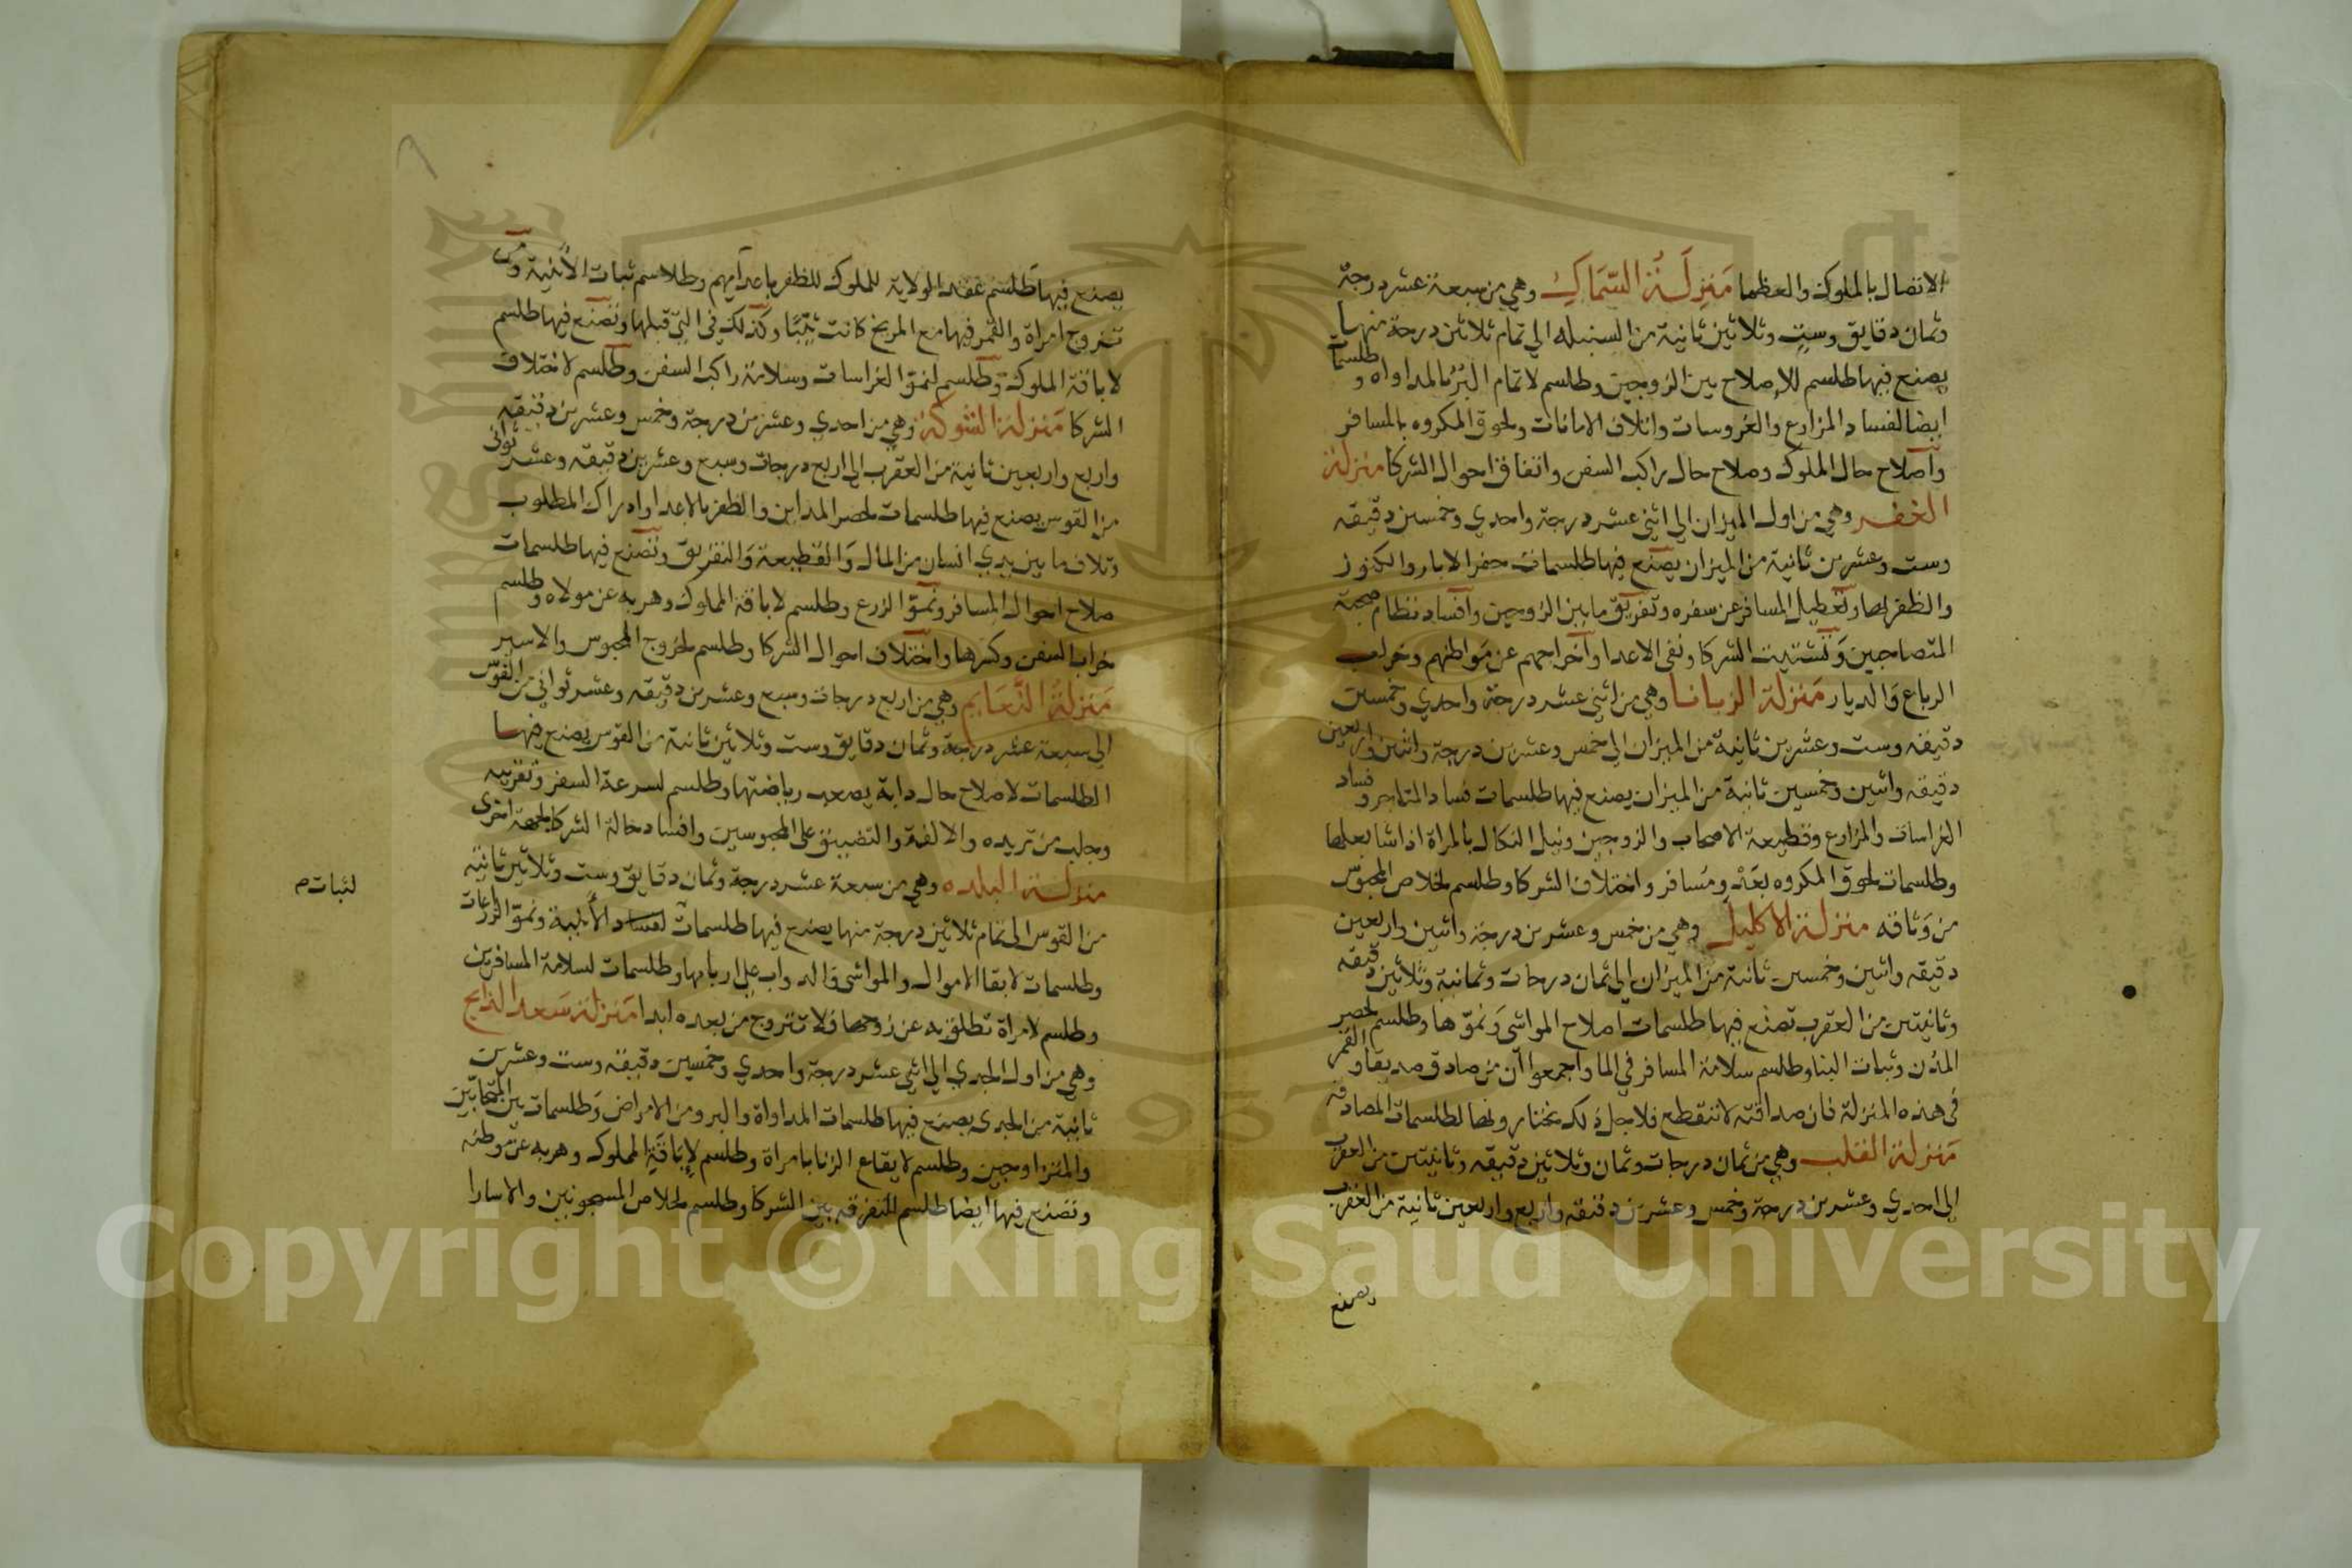 الاتصال بالملوك والعظما مَنزِلَةُ السِّمَاكِ وهي من سبعة عشر درجة
وثمان دقايق وستٍ وثلاثين ثانية من السنبله الي تمام ثلاثين درجة منها
يصنع فيها طلسم للاصلاح بين الزوجين وطلسم لاتمام البُرْء بالمداواه وطلسمات
ايضا لفساد المزارع والغروسات واتلاف الامانات ولحوق المكروه بالمسافر
واصلاح حال الملوك وصلاح حال راكب السفن واتفاق احوال الشركا منزلة
الغفر وهي من اول الميزان الي اثني عشر درجة واحدي وخمسين دقيقه
وست وعشرين ثانية من الميزان يصنع فيها طلسمات حفر الابار والكنوز
والظفر بها وتعطيل المسافر عن سفره وتفريق ما بين الزوجين وافساد نظام صحبة
المتصاحبين وتشتيت الشركا ونفي الاعدا واخراجهم عن مواطنهم وخراب
الرباع والديار منزلة الزبانا وهي من اثني عشر درجة واحدي وخمسين
دقيقه وست وعشرين ثانية من الميزان الي خمس وعشرين درجة واثنين واربعين
دقيقه واثنين وخمسين ثانية من الميزان يصنع فيها طلسمات فساد المتاجر وفساد
الغراسات والمزارع وقطيعة الاصحاب والزوجين ونيل النكال بالمراة اذا شا بعلها
وطلسمات لحوق المكروه بعدٍّ ومسافر واختلاف الشركا وطلسم لخلاص المحبوس
من وَثاقه منزلة الاكليل وهي من خمس وعشرين درجة واثنين واربعين
دقيقه واثنين وخمسين ثانية من الميزان الي ثمان درجات وثمانية وثلاثين دقيقه
وثانيتين من العقرب تصنع فيها طلسمات اصلاح المواشي ونموّها وطلسم لحصر
المدن وثبات البنا وطلسم سلامة المسافر في الما واجمعوا ان من صادق صديقا والقمر
في هذه المنزلة فان صداقته لا تنقطع فلاجل ذلك تختار ونها لطلسمات المصادقه
منزلة القلب وهي من ثمان درجات وثمان وثلاثين دقيقه وثانيتين من العقرب
الي احدي وعشرين درجة وخمس وعشرين دقيقه واربع واربعين ثانية من العقرب
ويصنع
يصنع فيها طلسم عقد الولاية للملوك للظفر باعدايهم وطلاسم ثبات الابنية ومن
تزوج امراة والقمر فيها مع المريخ كانت ثيّبًا وكذلك في التي قبلها وتصنع فيها طلسم
لاباقة الملوك وطلسم لنمو الغراسات وسلامة راكب السفن وطلسم لاختلاف
الشركا منزلة الشوكة وهي من احدي وعشرين درجة وخمس وعشرين دقيقه
واربع واربعين ثانية من العقرب الي اربع درجات وسبع وعشرين دقيقه وعشر ثواني
من القوس يصنع فيها طلسمات لحصر المداين والظفر بالاعدا وادراك المطلوب
وتلاف ما بين يدي انسان من المال والقطيعة والتفريق وتصنع فيها طلسمات
صلاح احوال المسافر ونموّ الزرع وطلسم لاباقة المملوك وهربه عن مولاه وطلسم
خراب السفن وكسرها واختلاف احوال الشركا وطلسم لخروج المحبوس والاسير
منزلة النَّعَايم وهي من اربع درجات وسبع وعشرين دقيقه وعشر ثواني من القوس
الي سبعة عشر درجة وثمان دقايق وست وثلاثين ثانية من القوس يصنع فيها
الطلسمات لاصلاح حال دابة يصعب رياضتها وطلسم لسرعة السفر وتقريبه
وجلب من تريده والالفة والتضييق علي المحبوسين وافساد حالة الشركا لجهة اخرى
منزلة البلده وهي من سبعة عشر درجة وثمان دقايق وست وثلاثين ثانية
من القوس الي تمام ثلاثين درجة منها يصنع فيها طلسمات لفساد الأبنية ونموّ الزراعات
لثبات م
وطلسمات لابقا الاموال والمواشي والدواب علي اربابها وطلسمات لسلامة المسافرين
وطلسم لامراة تطلق به عن زوجها فلا تتزوج من بعده ابدا منزلة سَعد الذابح
وهي من اول الجدي الي اثني عشر درجة واحدي وخمسين دقيقه وست وعشرين
ثانية من الجدي يصنع فيها طلسمات المداواة والبرو من الامراض وطلسمات بين المتحابّين
والمتزاوجين وطلسم لايقاع الزنا بامراة وطلسم لإباقَةِ المملوك وهربه عن وطنه
وتصنع فيها ايضا طلسم للتفرقه بين الشركا وطلسم لخلاص المسجونين والاسارا
Copyright © King Saud University
1957